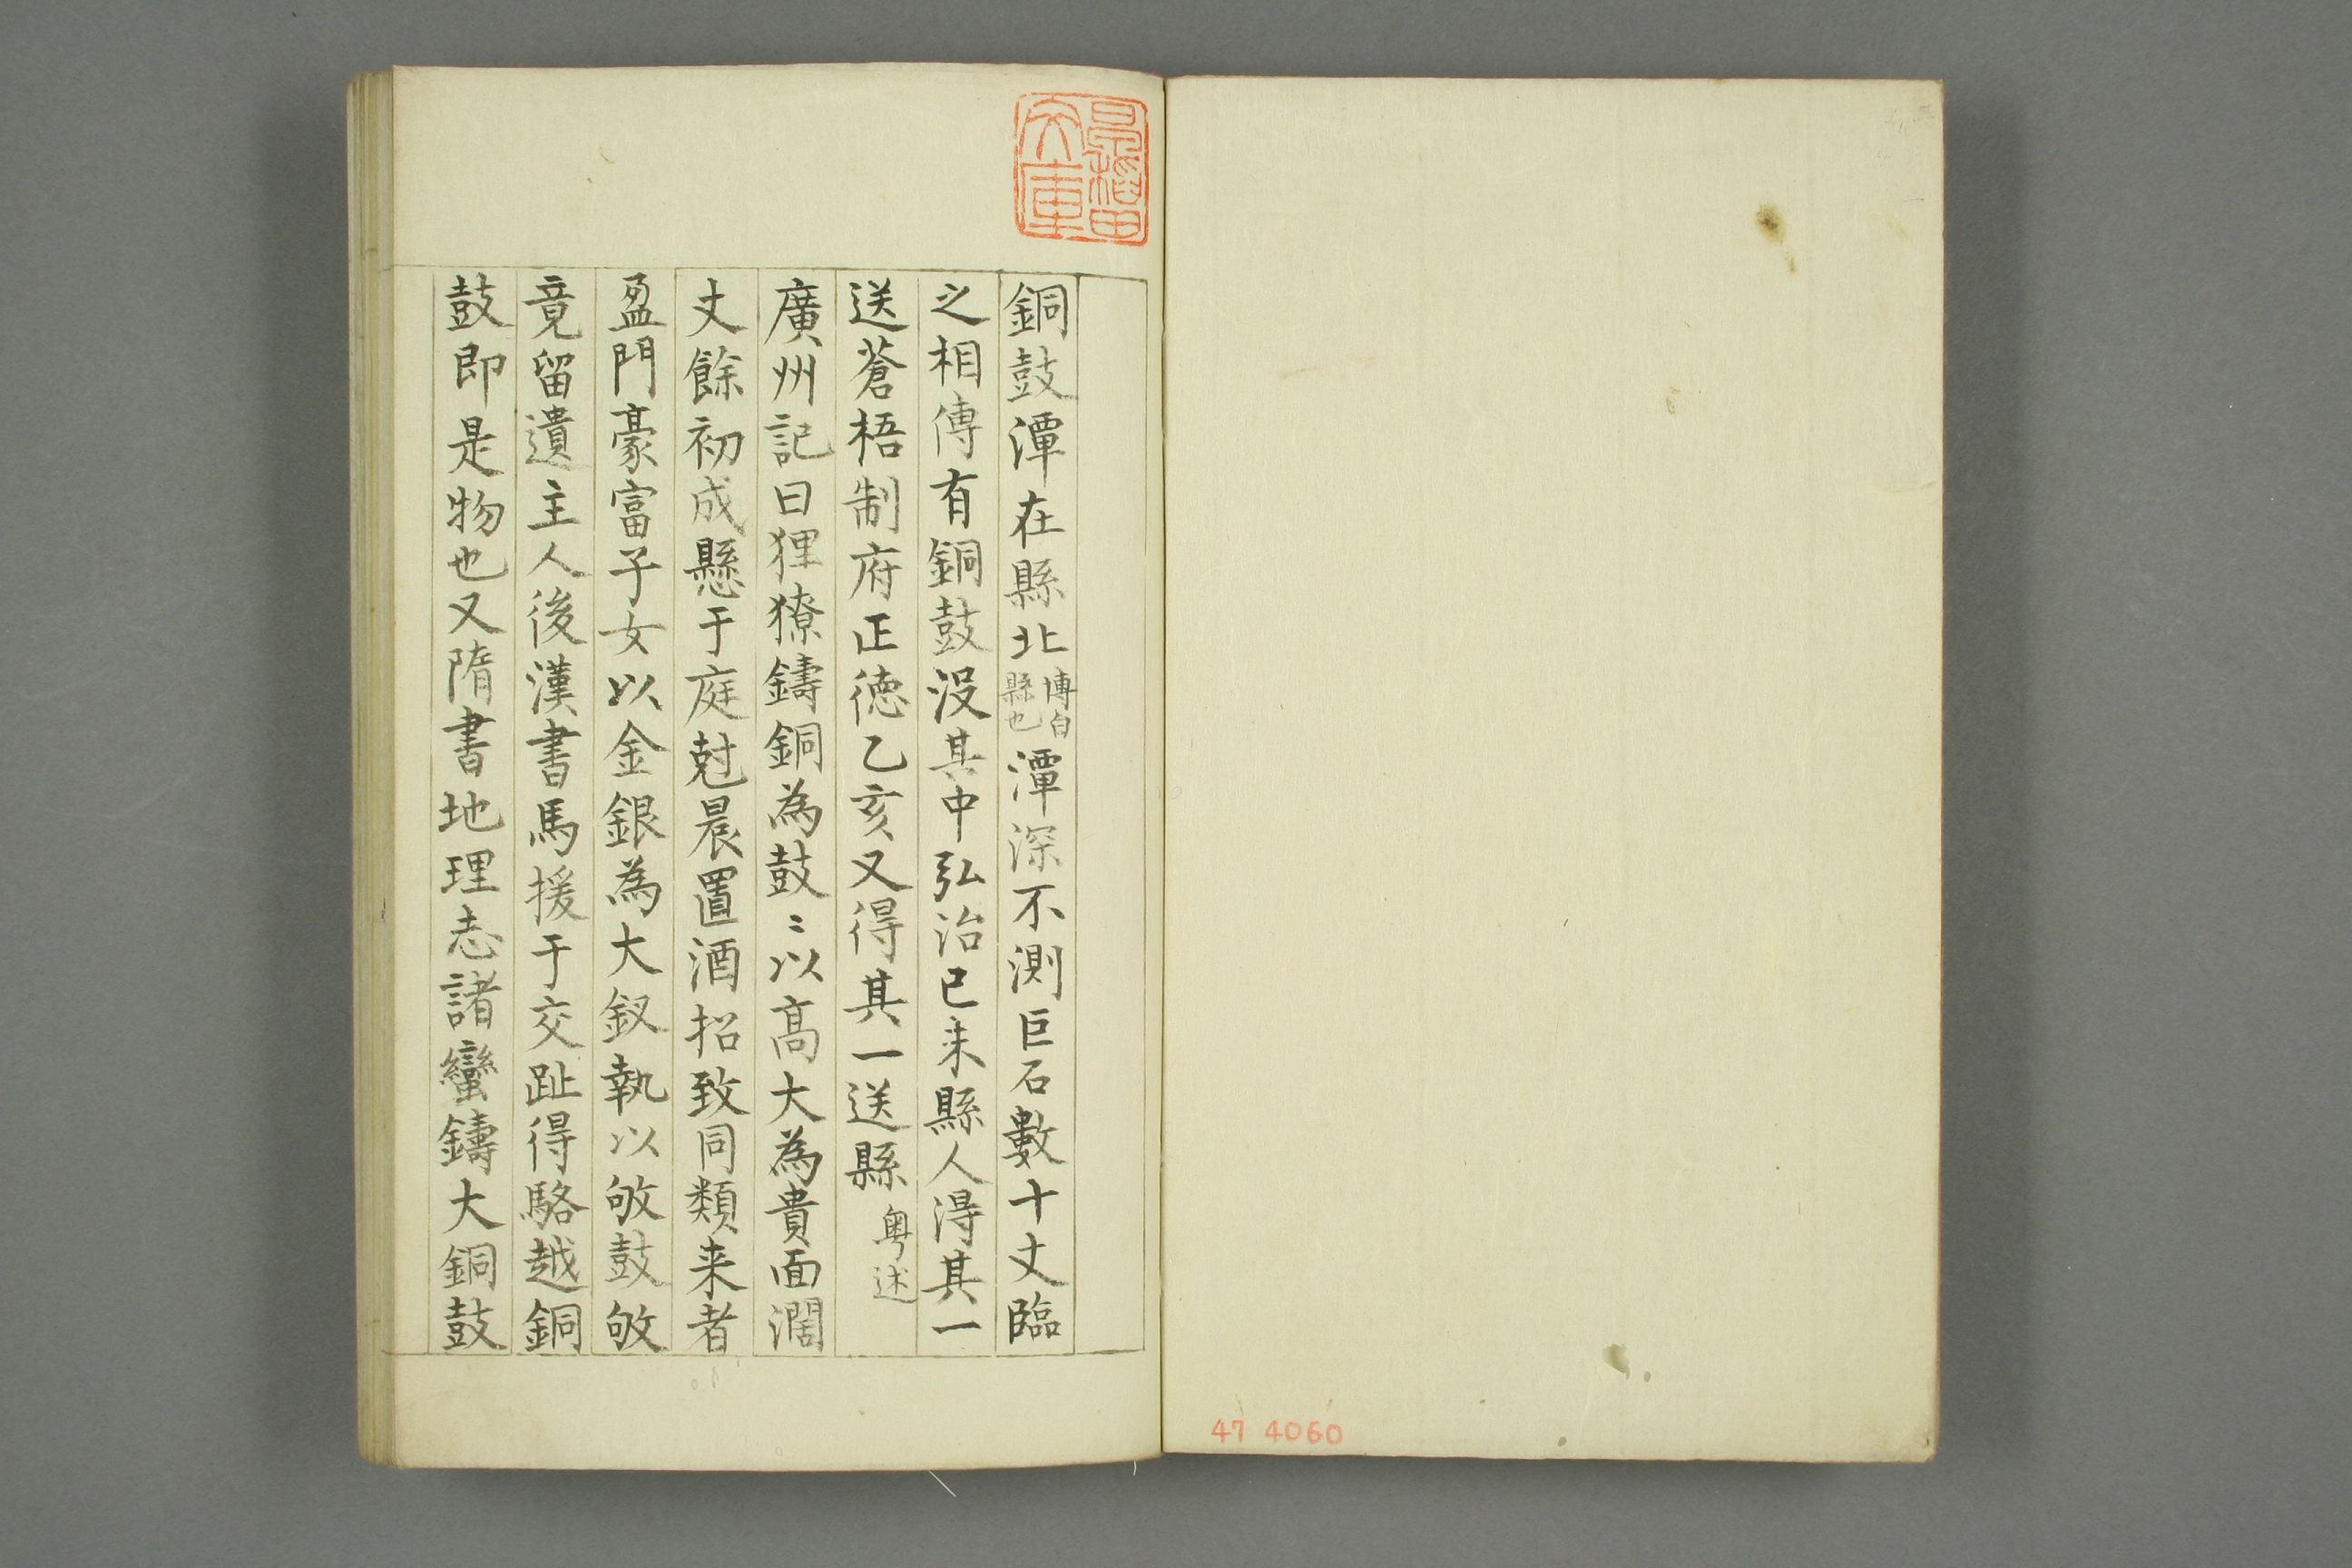 銅鼓潭在縣北博白縣也潭深不測巨石數十丈臨
之相傳有銅鼓没其中弘治己未縣人得其一
送蒼梧制府正徳乙亥又得其一送縣 粤述
廣州記曰狸獠鑄銅為鼓〻以髙大為貴面濶
丈餘初成懸于庭尅晨置酒招致同類来者
盈門豪富子女以金銀為大釵執以㪣鼓㪣
竟留遺主人後漢書馬援于交趾得駱越銅
鼓即是物也又隋書地理志諸蠻鑄大銅鼓
早稲田文庫
47 4060